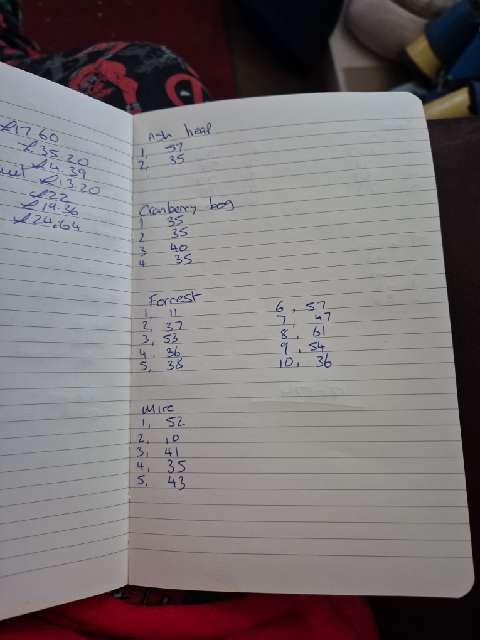 £17.60
£35.20
£4.39
£13.20
£22
£19.36
£24.64
Ash heap
1 57
2, 35
Cranberry bog
1 35
2 35
3 40
4 35
Forcest
1, 11
2, 37
3, 53
4, 36
5, 38
6, 57
7, 47
8, 61
9, 54
10, 36
Mire
1, 52
2, 10
3, 41
4, 35
5, 43